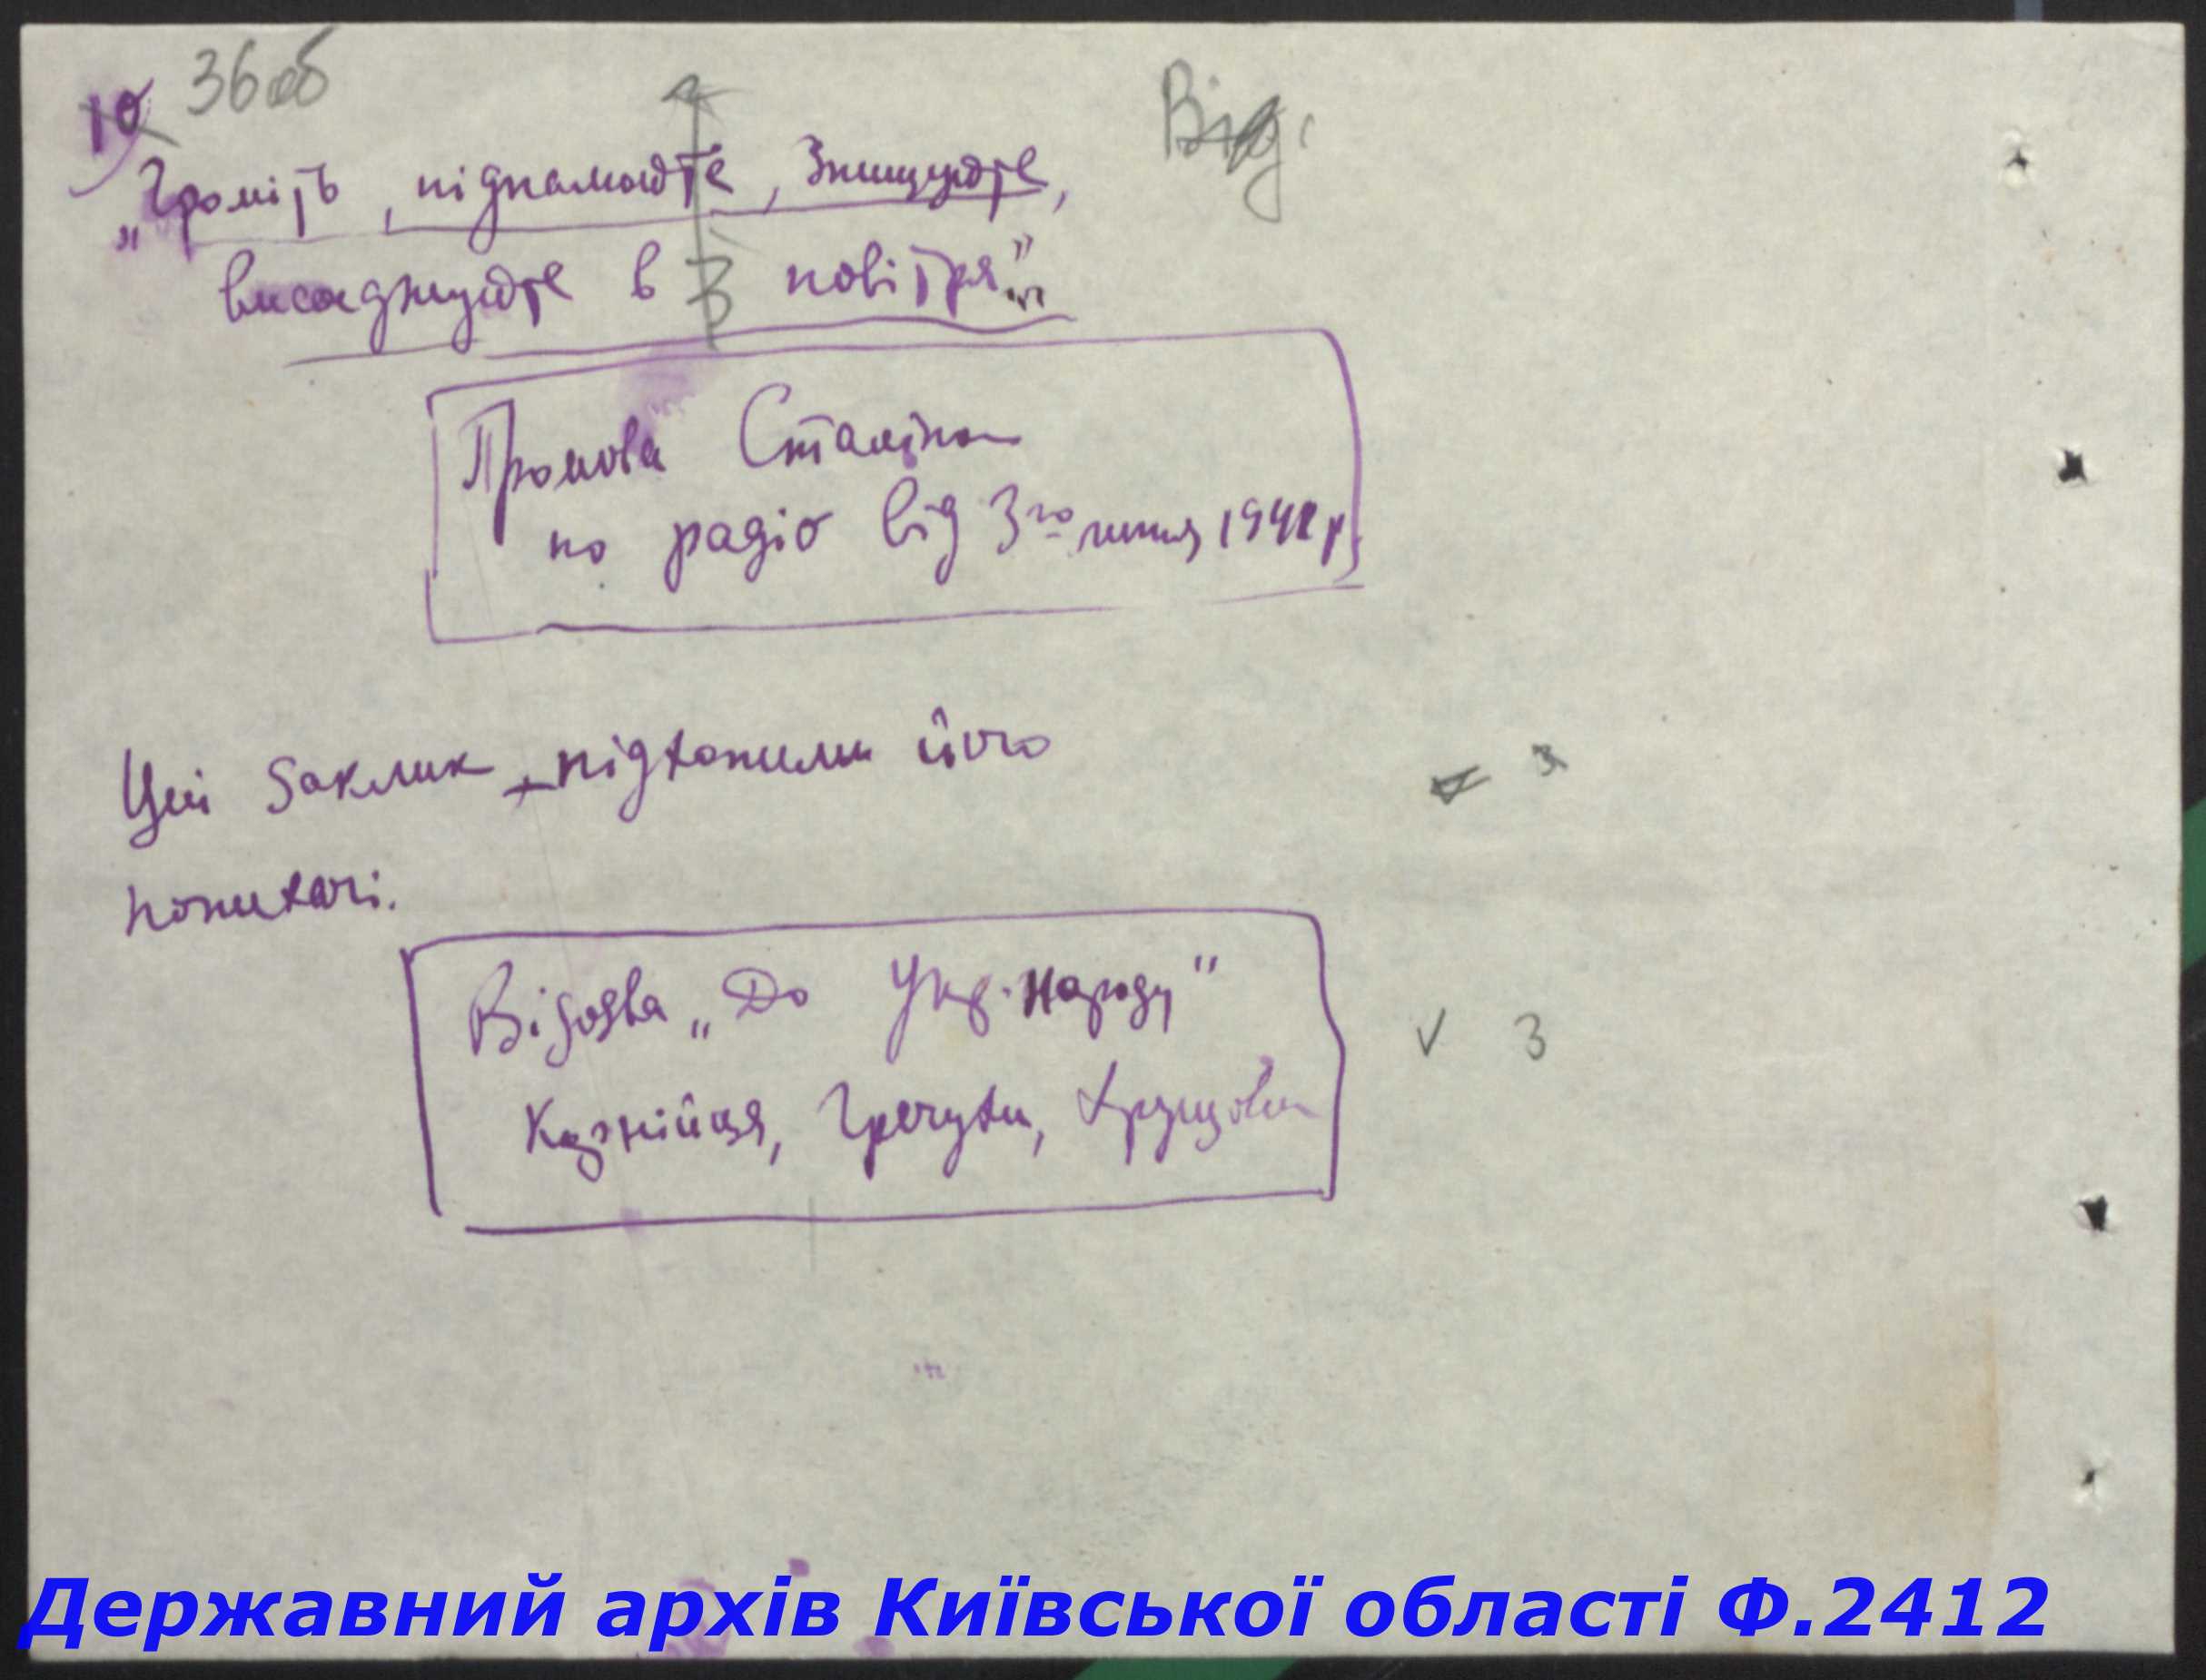 10 36об
Від.
„Громіть, підпалюйте, Знищуйте,
висаджуйте в повітря"
З
Промова Сталіна
по радіо від 3го липня 1941 р.
Цей заклик підхопили його
попихачі.
З
Відозва „До Укр. народу"
Корнійця, Гречухи, Хрущова
V 3
Державний архів Київської області Ф.2412